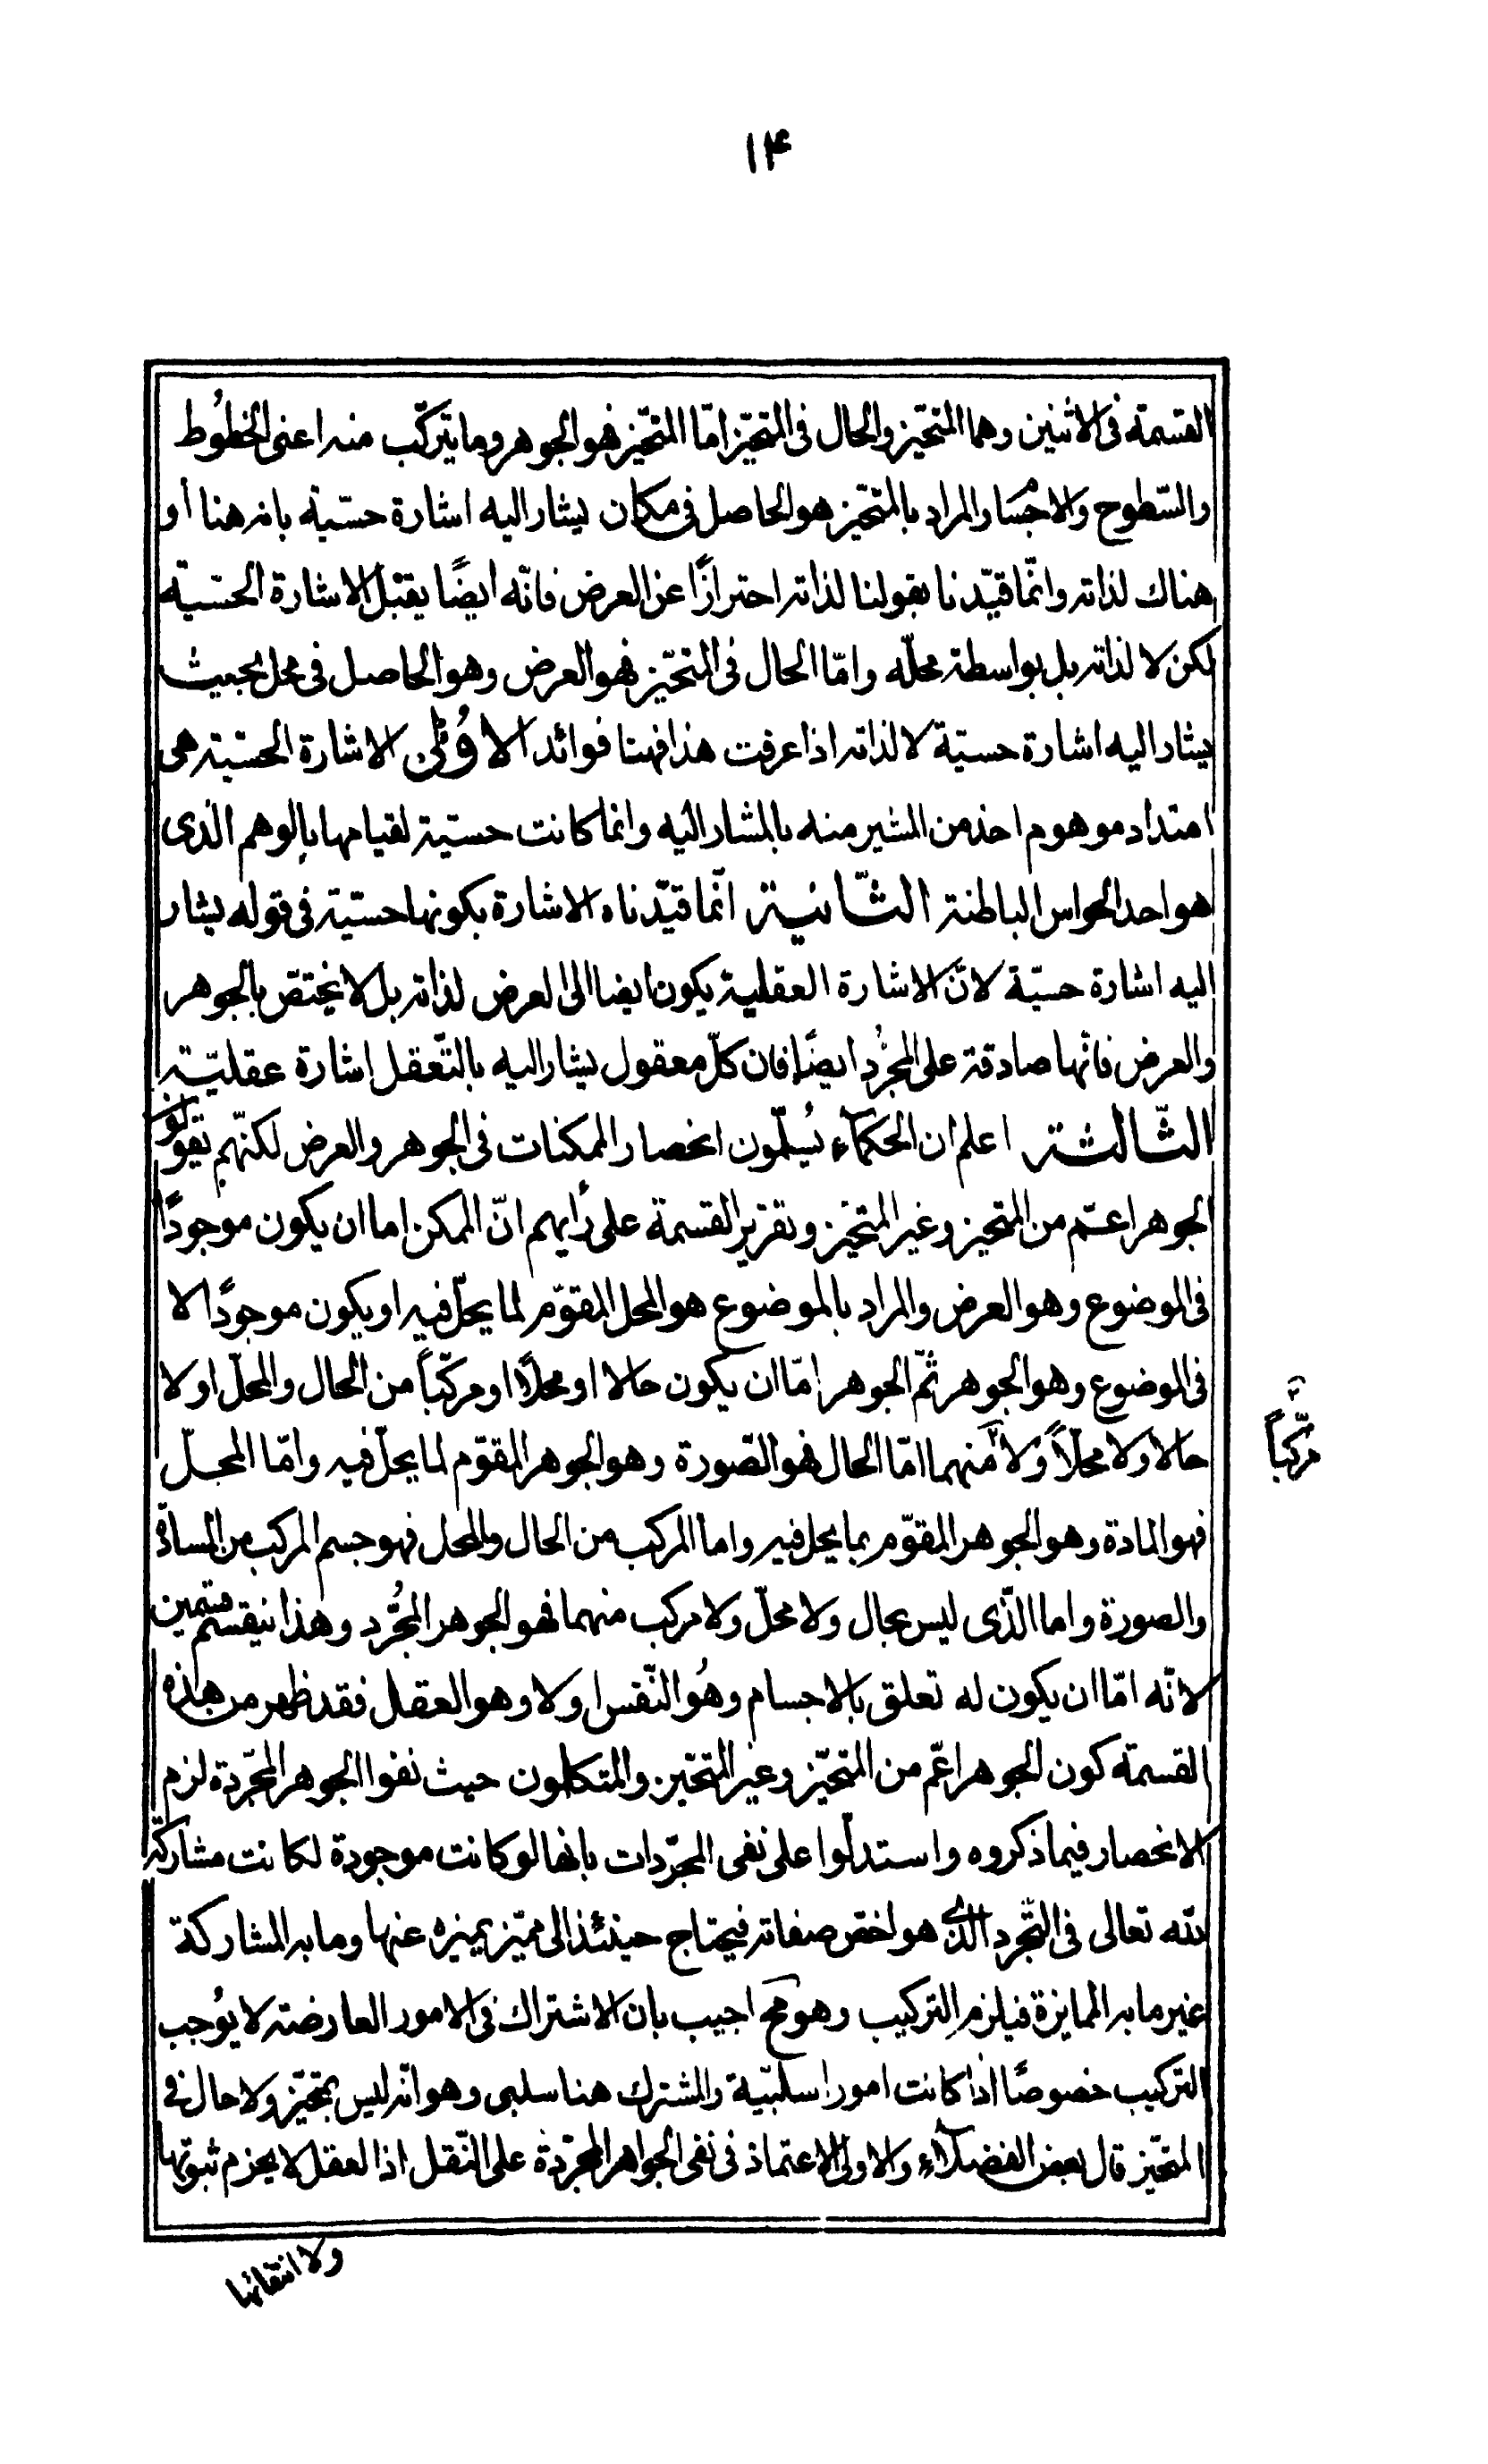 ۱۴
القسمة فى الاثنين وهما المتحيّز والحال فى المتحيّز امّا المتحيّز فهو الجوهر وما يتركّب منه اعنى الخطُوط
والسّطوح والاجْسَام والمراد بالمتحيّز هو الحاصل فى مكان يشار اليه اشارة حسّية بانه هنا أو
هناك لذاته وانّما قيّدنا بقولنا لذاته احترازًا عن العرض فانّه ايضًا يقبل الاشارة الحسّية
لكن لا لذاته بل بواسطة محلّه وامّا الحال فى المتحيّز فهو العرض وهو الحاصل فى محل بحيث
يشار اليه اشارة حسيّة لا لذاته اذا عرفت هذا فهنا فوائد الاُوْلٰى الاشارة الحسّية هى
امتداد موهوم اخذ من المشير منه بالمشار اليه وانما كانت حسّية لقيامها بالوهم الذى
هو احد الحواس الباطنة الثّانية انّما قيّدناه الاشارة بكونها حسّية فى قوله يشار
اليه اشارة حسيّة لانّ الاشارة العقلية يكون ايضا الى العرض لذاته بل لا يختصّ بالجوهر
والعرض فانّها صادقة على المجرّد ايضًا فان كلّ معقول يشار اليه بالتّعقل اشارة عقليّة
الثّالثة اعلم ان الحكمآء يُسلّمون انحصار الممكنات فى الجوهر والعرض لكنّهم يقولون
الجوهر اعمّ من المتحيز وغير المتحيّز وتقرير القسمة على رأيهم انّ الممكن اما ان يكون موجودًا
فى الموضوع وهو العرض والمراد بالموضوع هو المحل المقوّم لما يحلّ فيه او يكون موجودًا لا
فى الموضوع وهو الجوهر ثمّ الجوهر امّا ان يكون حالا او محلًا او مركّباً من الحال والمحلّ او لا
حالا ولا محلّاً وَلا منهما امّا الحال فهو الصّورة وهو الجوهر المقوّم لما يحلّ فيه وامّا المحلّ
مركّباً
فهو المادة وهو الجوهر المقوّم بما يحل فيه واما المركب من الحال والمحل فهو جسم المركب من المادّة
والصورة واما الّذى ليس بحال ولا محلّ ولا مركب منهما فهو الجوهر المجُّرد وهذا ينقسم قسمين
لانّه امّا ان يكون له تعلق بالاجسام وهُو النّفس او لا وهو العقل فقد ظهر من هذه
القسمة كون الجوهر اعّم من المتحيّز وغير المتحيّز والمتكلمون حيث نفوا الجوهر المجّردة لزم
الانحصار فيما ذكروه واستدلّوا على نفى المجرّدات بانها لو كانت موجودة لكانت مشاركة
لله تعالى فى التّجرد الذى هو اخص صفاته فيحتاج حينئذ الى مميّز يميزه عنها وما به المشاركة
غير ما به الممايزة فيلزم التركيب وهو مح اجيب بان الاشتراك فى الامور العارضة لا يوُجب
التركيب خصوصًا اذا كانت امورا سلبيّة والمشترك هنا سلبى وهو انه ليس بمتحيّز ولا حال فى
المتحيّز قال بعض الفضلآء والاولى الاعتماد فى نفى الجواهر المجرّدة على النّقل اذ العقل لا يجزم ثبوتها
ولا انتفائها